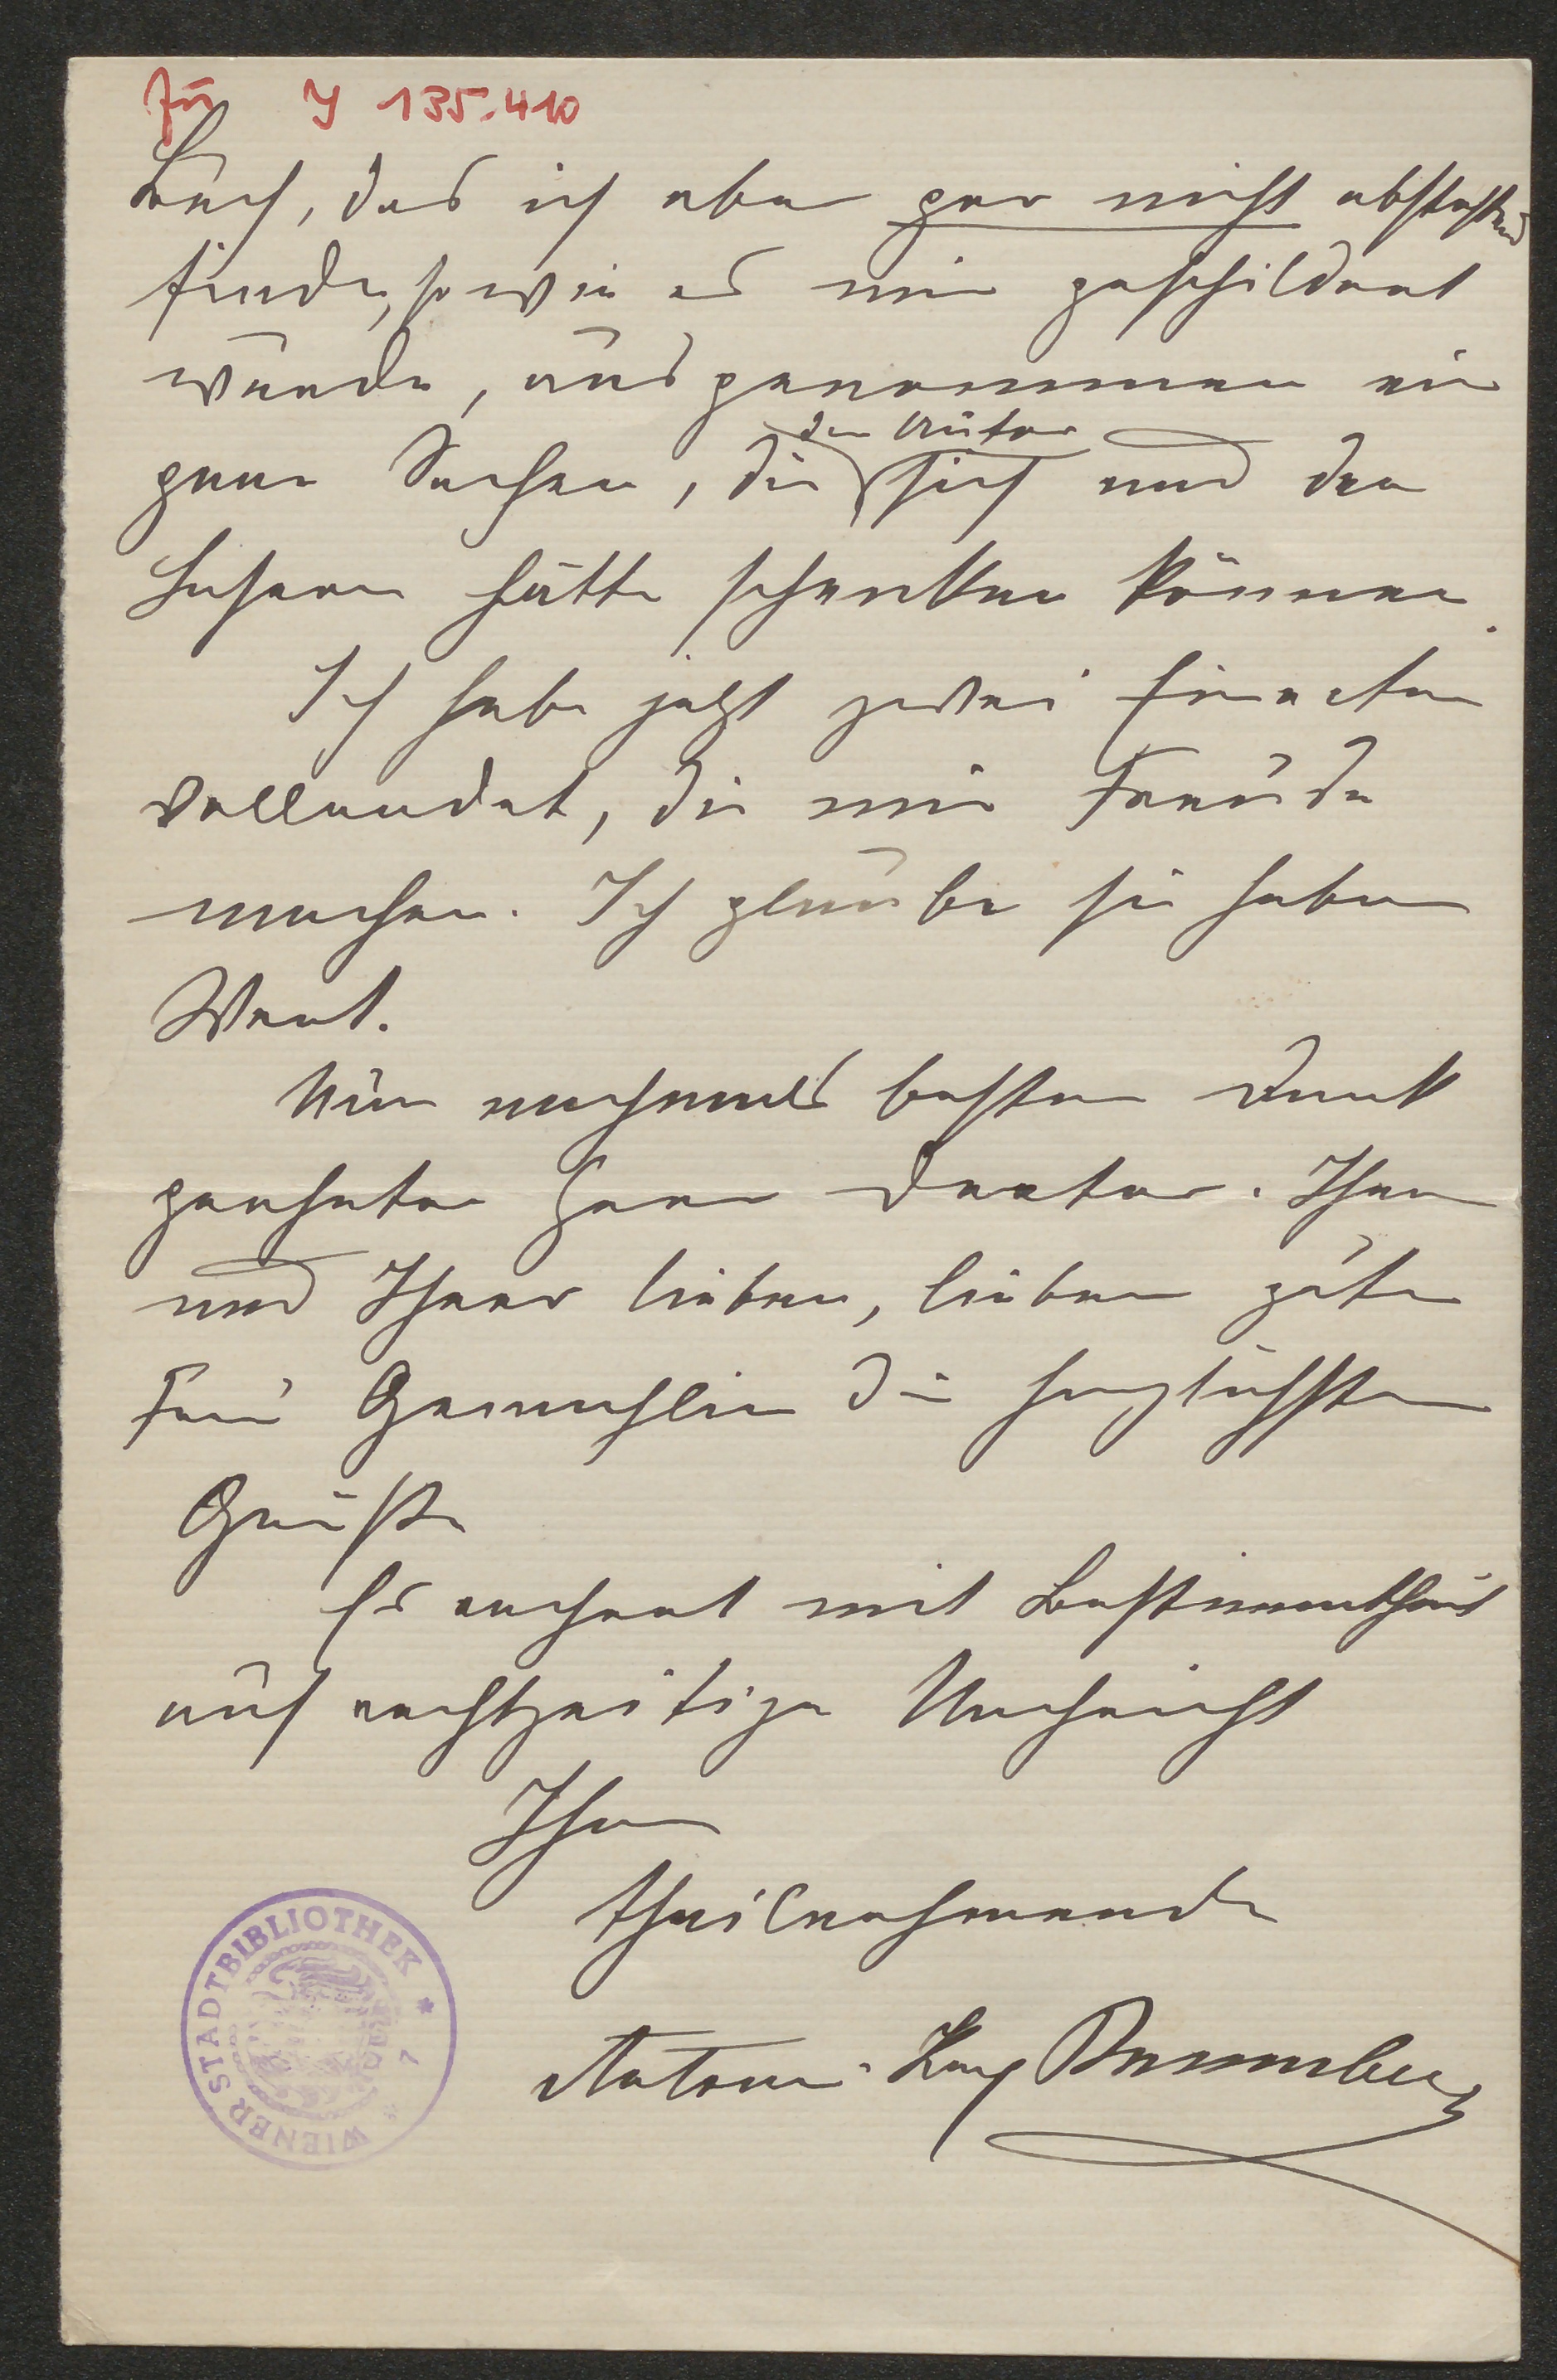 Zu J 135.410
Buch, das ich aber gar nicht abstoßend
finde, so wie es mir geschildert
wurde, ausgenommen ein
paar Sachen, die der Autor sich und den
Lesern hätte schenken können.
Ich habe jetzt zwei Einacter
vollendet, die mir Freude
machen. Ich glaube sie haben
Wert.
Nun nochmals besten Dank
geehrter Herr Doctor. Ihnen
und Ihrer lieben, lieben guten
Frau Gemahlin die herzlichsten
Grüße
Es rechnet mit Bestimmtheit
auf rechtzeitige Nachricht
Ihre
theilnehmende
Antonie Baumberg
WIENER STADTBIBLIOTHEK